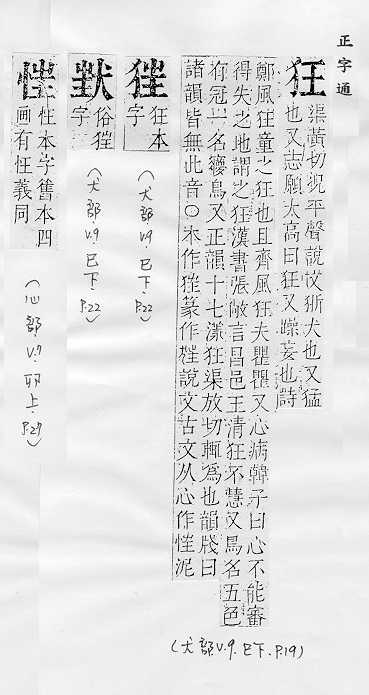 正字通
狂
渠黃切況平聲說文狾犬也又猛
也又志願太高曰狂又躁妄也詩
鄭風狂童之狂也且齊風狂夫瞿瞿又心病韓子曰心不能審
得失之地謂之狂漢書張敞言昌邑王清狂不慧又鳥名五色
有冠一名鳥又正韻十七漾狂渠放切輒爲也韻牋曰
諸韻皆無此音○本作㹵篆作說文古文从心作㤮泥
(犬部 v.9. 巳下. P.19)
㹵
狂本
字
(犬部 v9 巳下. P.22)
俗㹵
字
(犬部 v.9. 巳下. P.22)
㤮
忹本字舊本四
画有忹義同
(心部 v.9 卯上. P.29)